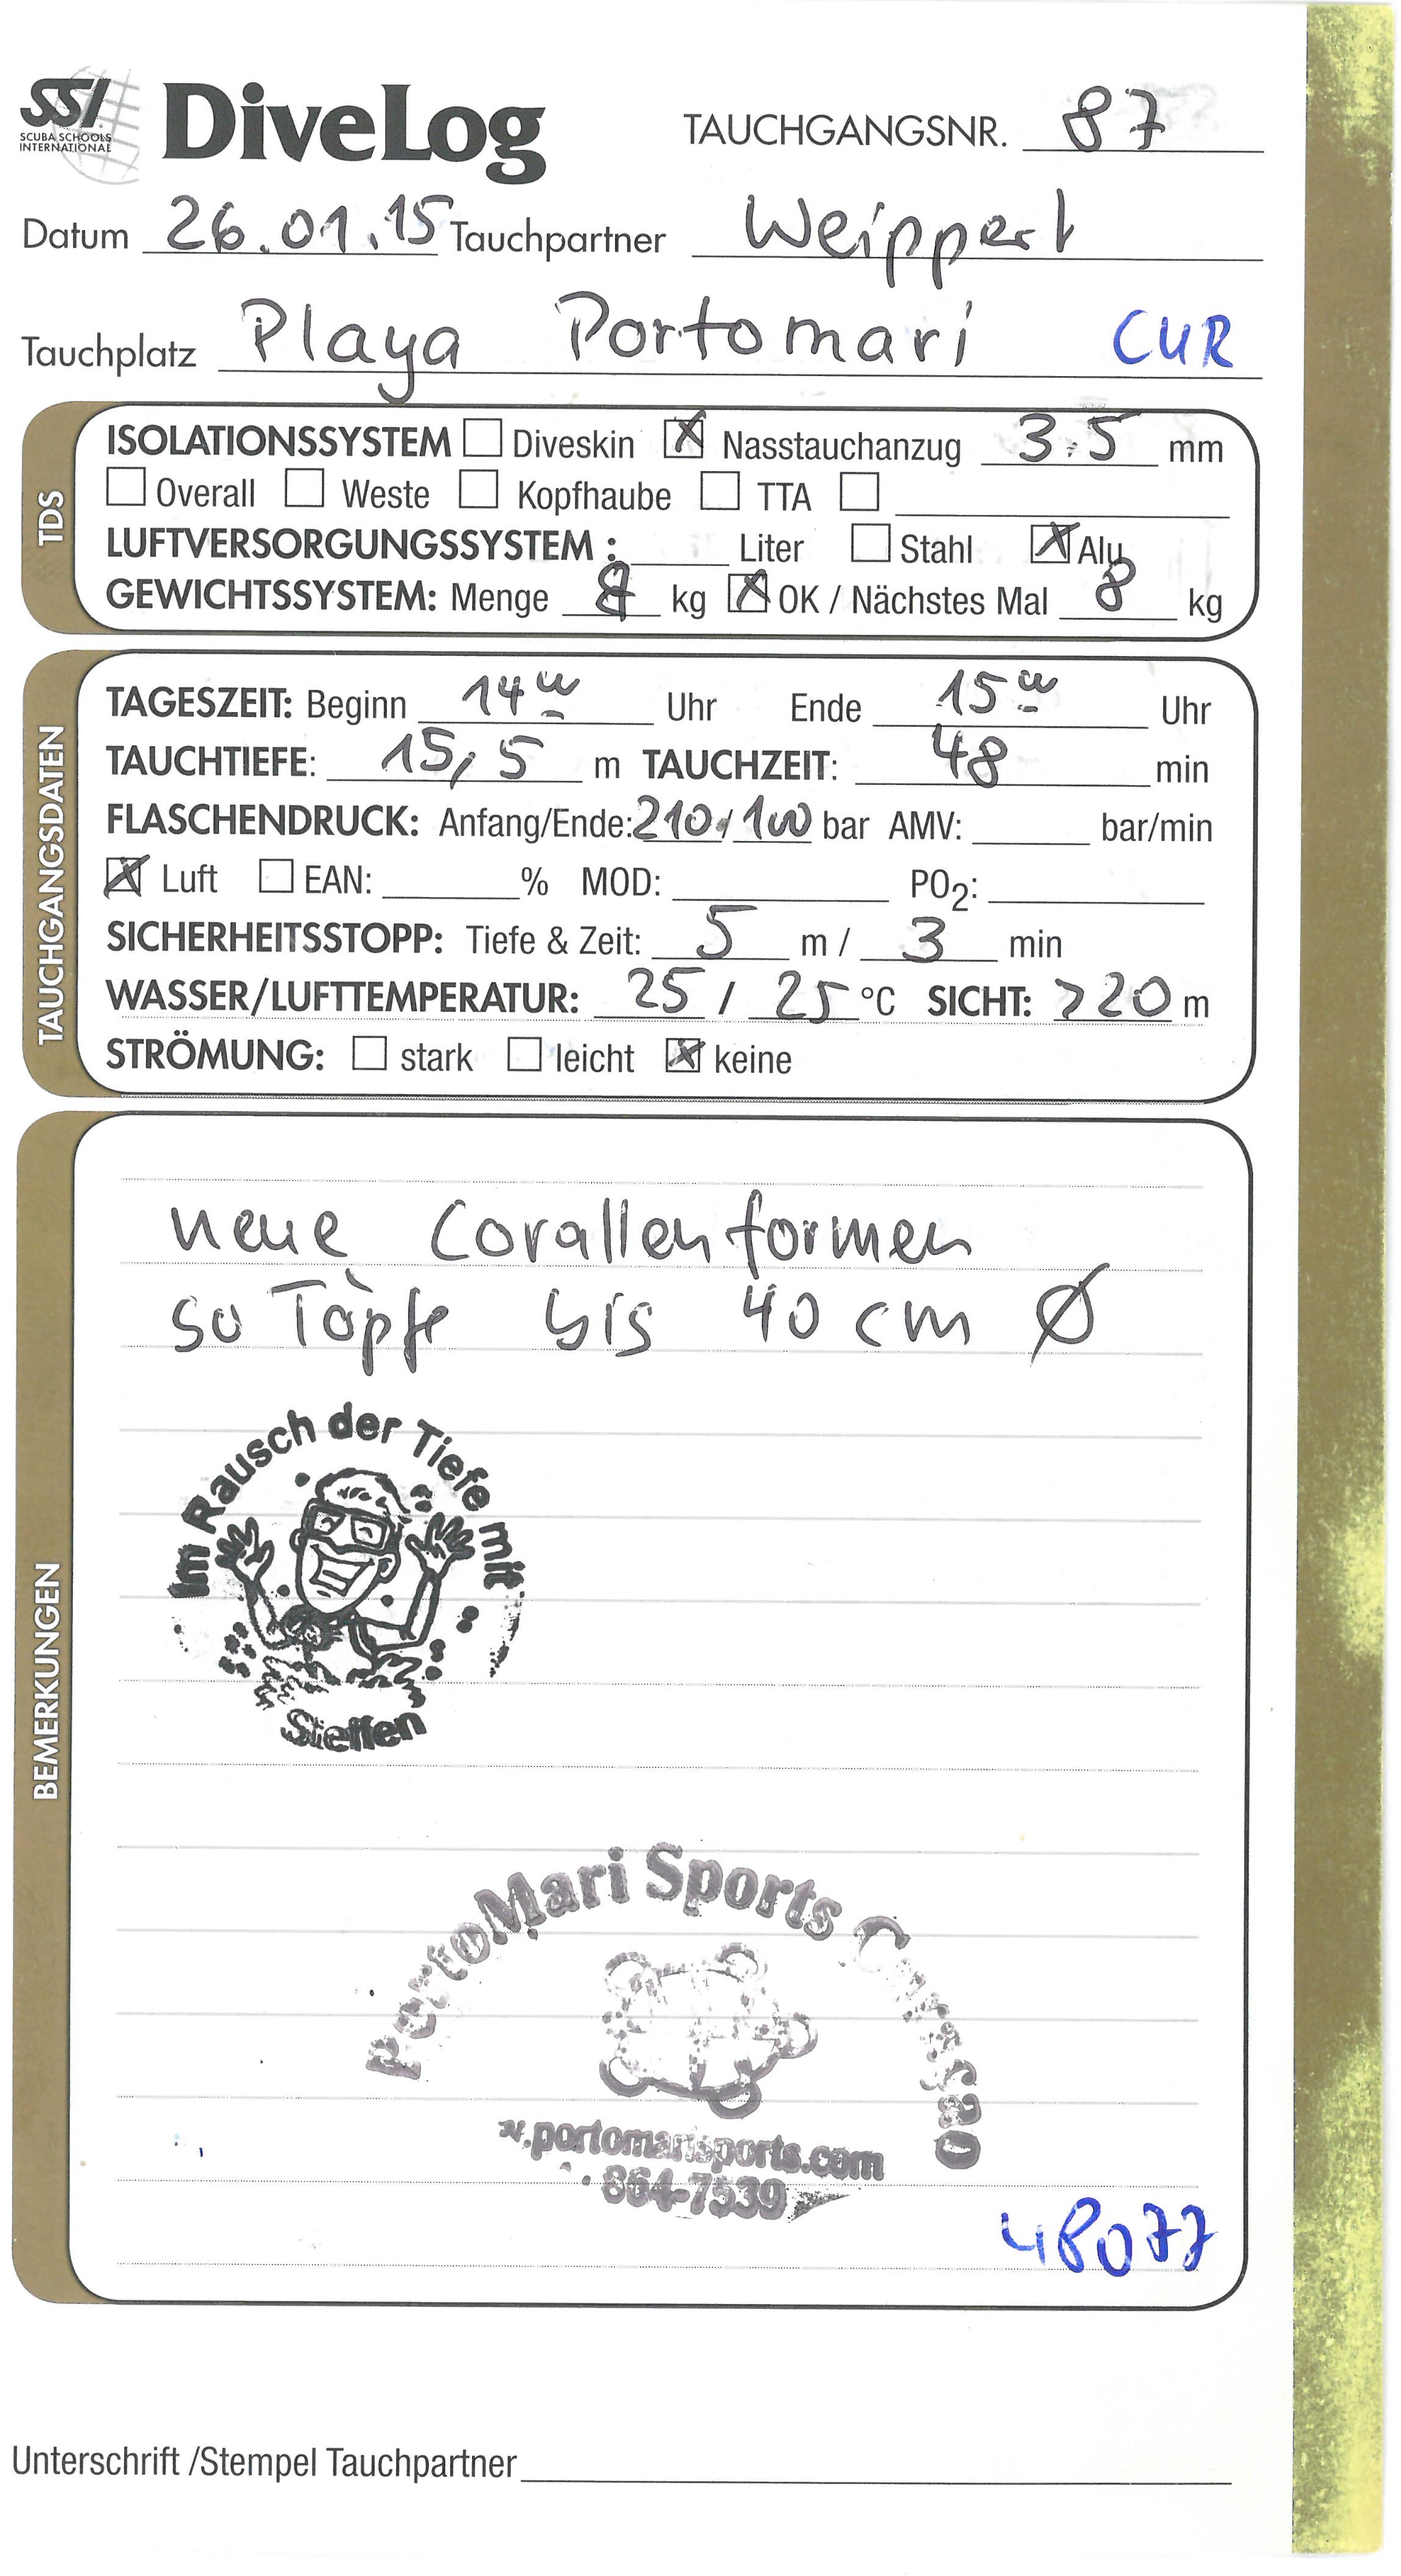 SSI
SCUBA SCHOOLS
INTERNATIONAL
DiveLog
TAUCHGANGSNR. 87
Datum 26.01.15 Tauchpartner Weippert
Tauchplatz Playa Portomari CUR
TDS
ISOLATIONSSYSTEM Diveskin Nasstauchanzug 3.5 mm
Overall Weste Kopfhaube TTA
LUFTVERSORGUNGSSYSTEM : Liter Stahl Alu
GEWICHTSSYSTEM: Menge 8 kg OK / Nächstes Mal 8 kg
TAUCHGANGSDATEN
TAGESZEIT: Beginn 14 00 Uhr Ende 15 00 Uhr
TAUCHTIEFE: 15,5 m TAUCHZEIT: 48 min
FLASCHENDRUCK: Anfang/Ende: 210 / 100 bar AMV: bar/min
Luft EAN: % MOD: PO2:
SICHERHEITSSTOPP: Tiefe & Zeit: 5 m / 3 min
WASSER/LUFTTEMPERATUR: 25 / 25 °C SICHT: >20 m
STRÖMUNG: stark leicht keine
BEMERKUNGEN
neue Corallenformen
so Töpfe bis 40 cm Ø
Im Rausch der Tiefe mit
Steffen
PortoMari Sports Curacao
w.portomarisports.com
864-7539
48077
Unterschrift /Stempel Tauchpartner